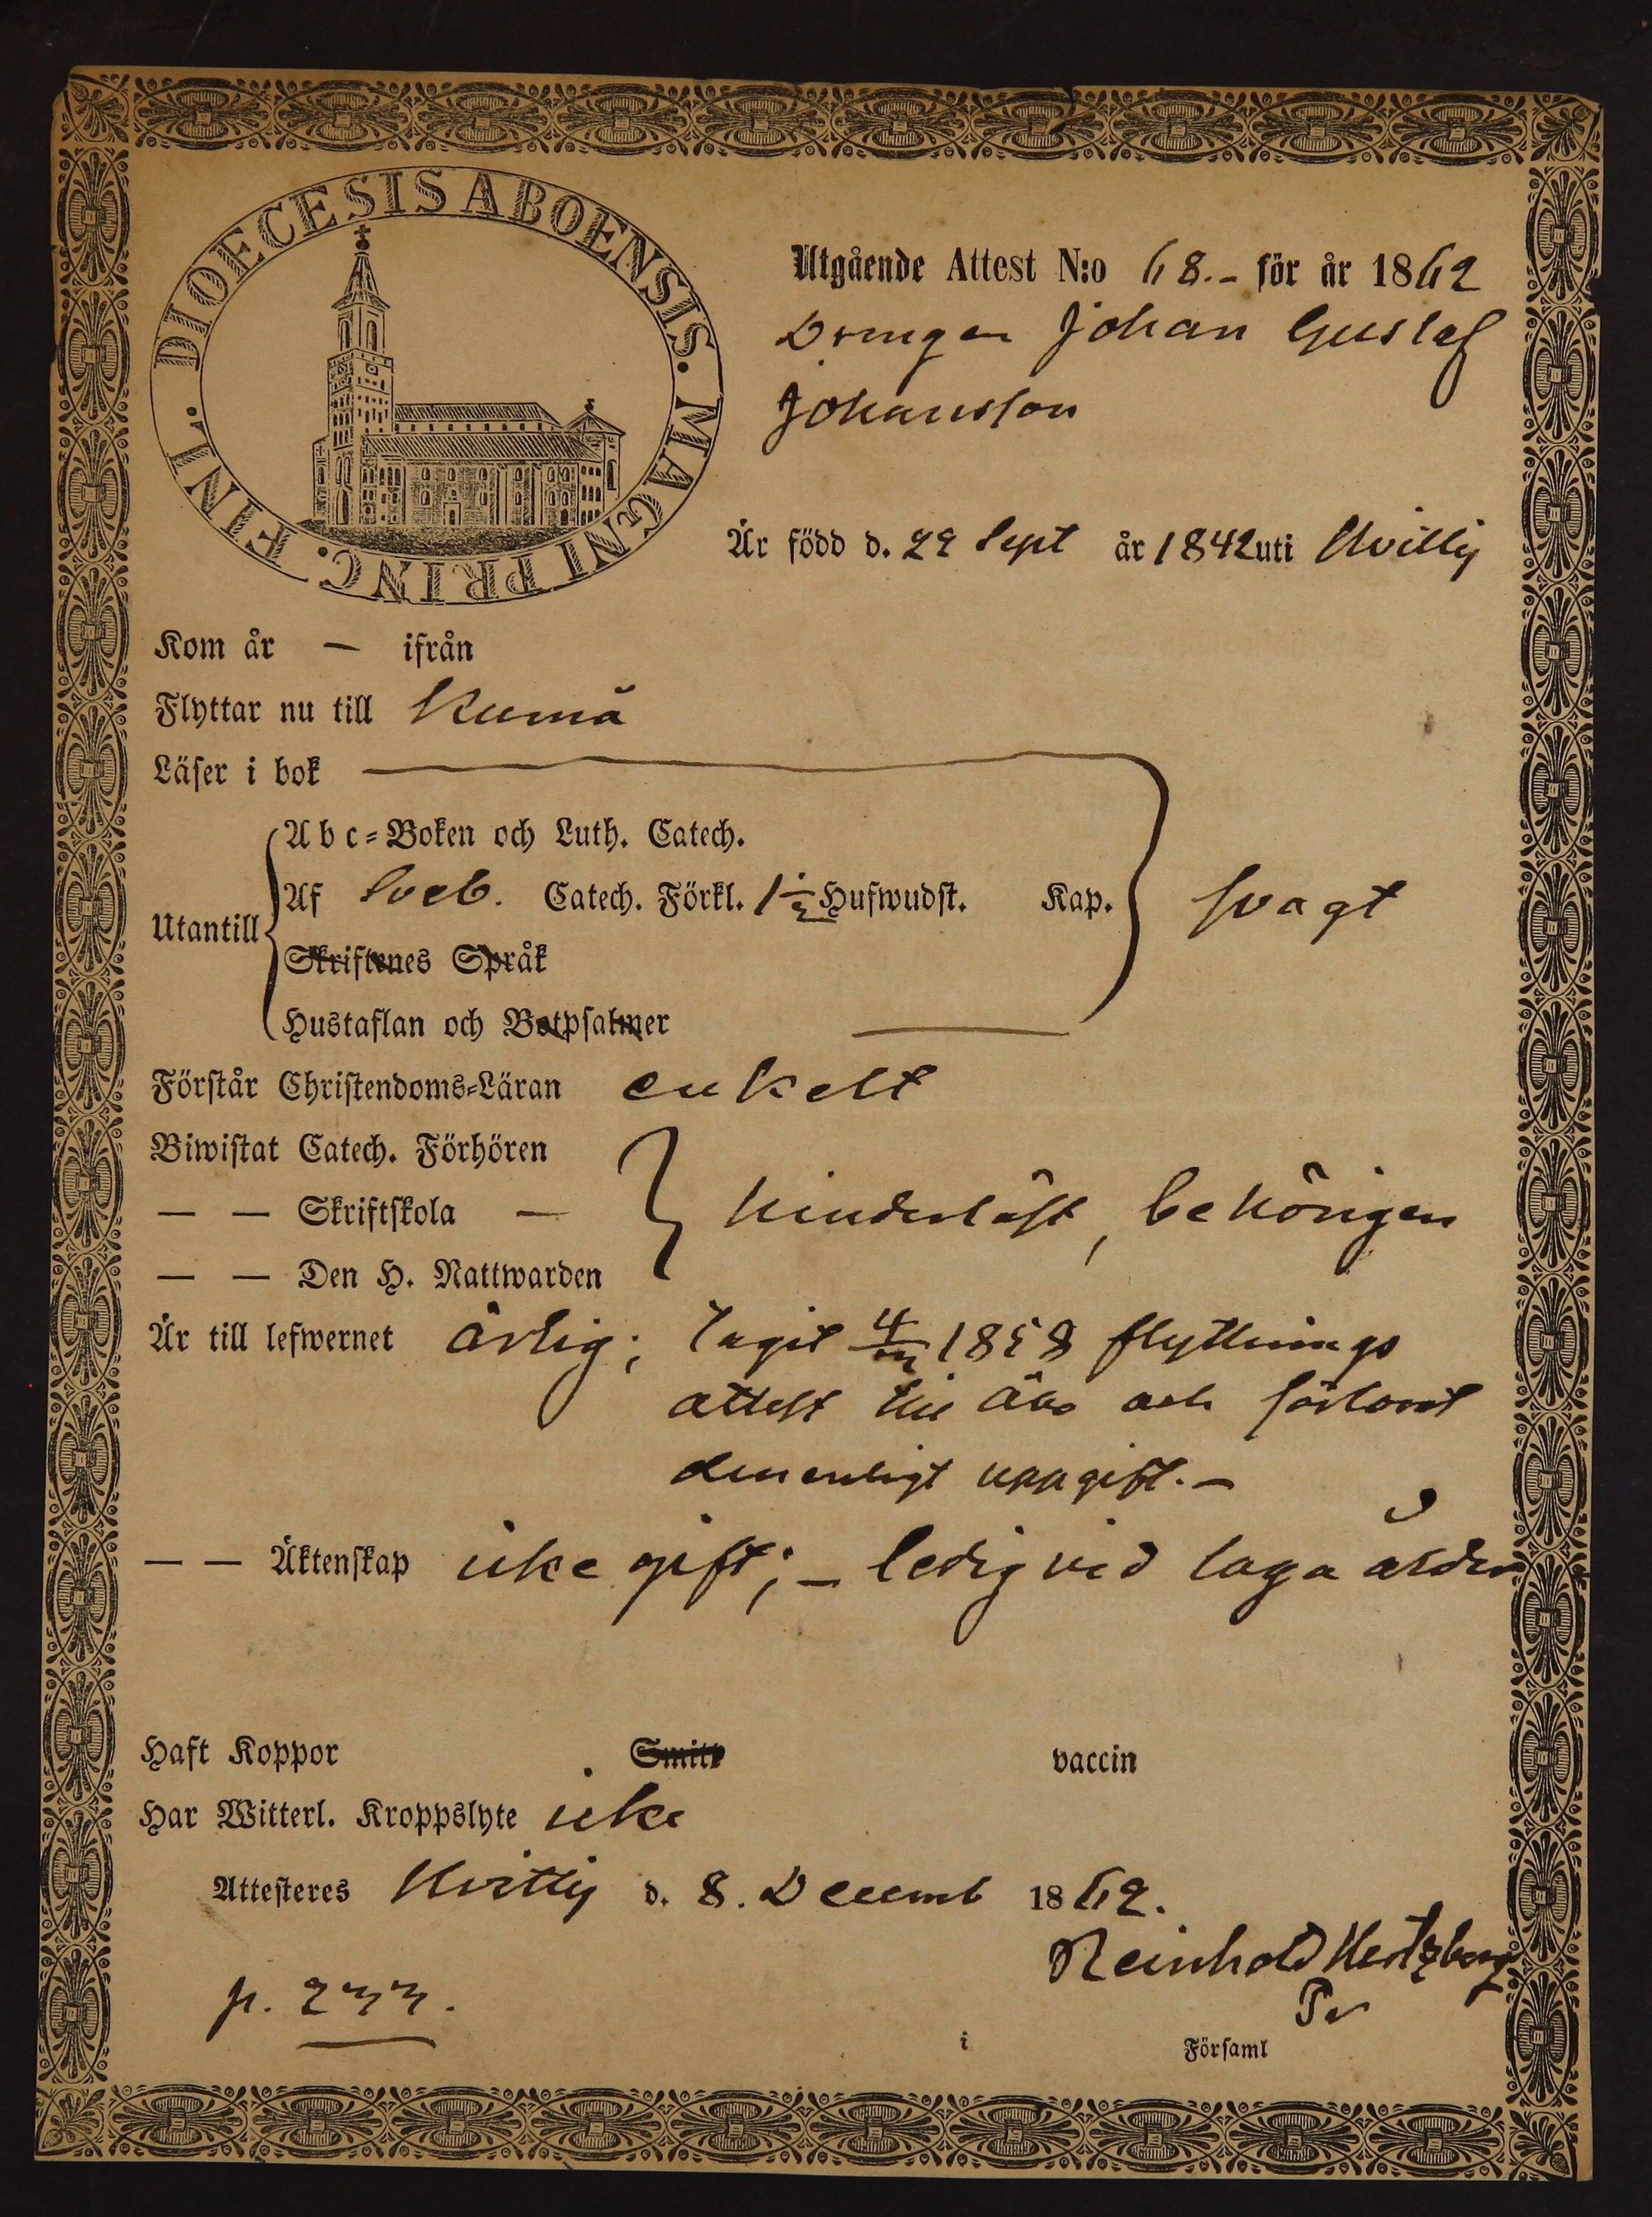 DIOECESIS ABOENSIS. MAGNI PRINC. FINL.
Utgående Attest N:o 68.- för år 1862
Drengen Johan Gustaf
Johansson
Är född d. 29 Sept år 1842 uti Hvittis
Kom år — ifrån
Flyttar nu till Kumå
Läser i bok
Abc-Boken och Luth. Catech.
Utantill Af Sveb. Catech. Förkl. 1½ Hufwudst. Kap. svagt
Skriftenes Språk
Hustaflan och Botpsalmer
Förstår Christendoms-Läran enkelt
Biwistat Catech. Förhören
— — Skriftskola — hinderlöst, behörigen
— — Den H. Nattwarden
Är till lefwernet ärlig; tagit 4/ 1858 flyttnings
attest till Åbo och förlorat
den enligt uppgift.-
— — Äktenskap icke gift; - ledig vid laga ålder
Haft Koppor Smitt vaccin
Har Witterl. Kroppslyte icke
Attesteres Hvittis d. 8. Decemb 1862.
Reinhold Hertzberg
p. 233.
i Församl